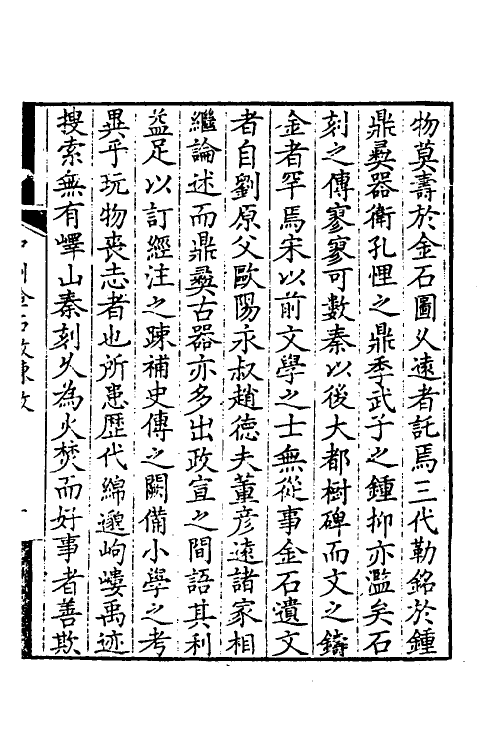 物莫壽於金石圖久遠者託焉三代勒銘於鍾
鼎彝器衛孔悝之鼎季武子之鍾抑亦濫矣石
刻之傳寥寥可數秦以後大都樹碑而文之鑄
金者罕焉宋以前文學之士無從事金石遺文
者自劉原父歐陽永叔趙德夫董彦遠諸家相
繼論述而鼎彝古器亦多出政宣之間語其利
益足以訂經注之踈補史傳之闕備小學之考
異乎玩物喪志者也所患歴代綿邈岣嶁禹迹
搜索無有嶧山秦刻久為火焚而好事者善欺